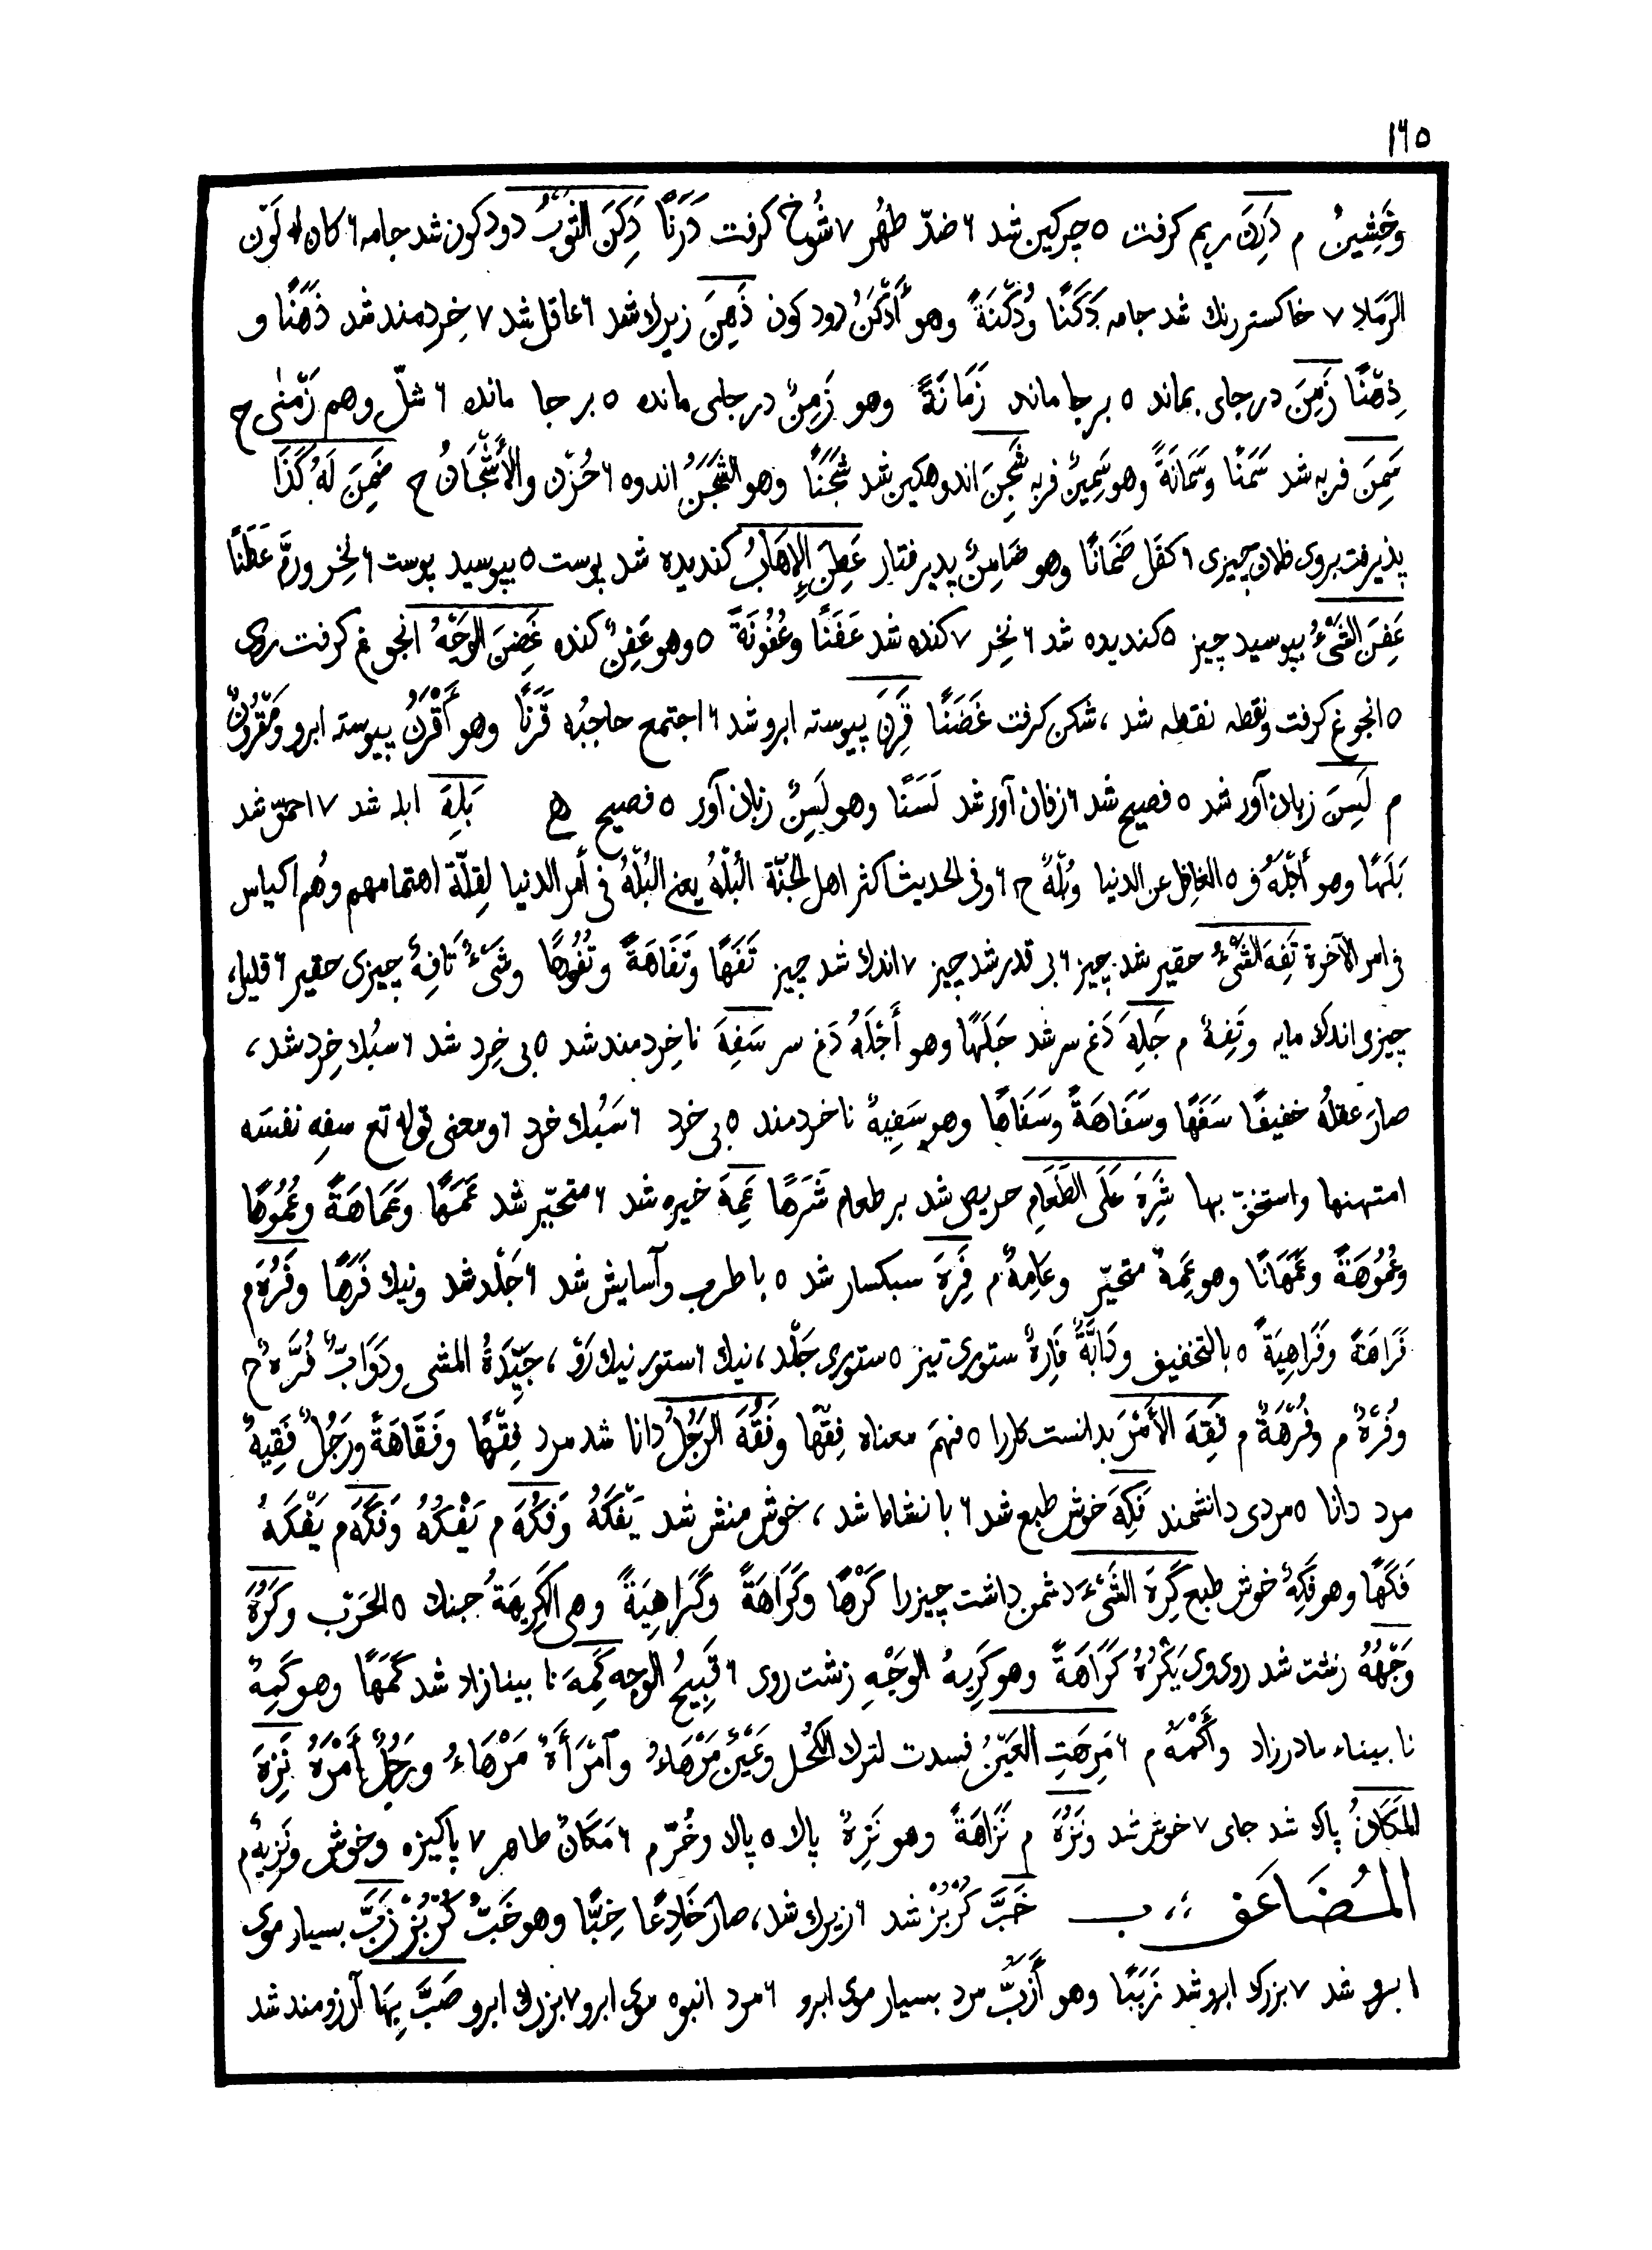 ١٦٥
وخَشِينٌ م دَرِنَ ريم كرفت ٥ چركين شد ٦ ضدّ طهُر ٧ شُوخ كرفت دَرَنًا دَكِنَ الثَوْبُ دودكون شد جامه ٦ كان له لَوْن
الرَماد ٧ خاكستر رنك شد جامه دَكَنًا ودُكْنَةً وهو أَدْكَنُ دود كون ذَهِنَ زيرك شد ٦ عاقل شد ٧ خِردمند شد ذَهَنًا و
ذِهْنًا زَمِنَ در جاى بماند ٥ برجا ماند زَمَانَةً وهو زَمِنٌ در جاى مانده ٥ بر جا مانده ٦ شلّ وهم زَمْنٰى ح
سَمِنَ فربه شد سَمَنًا وسَمَانَةً وهو سَمِينٌ فربه شَجِنَ اندوهكين شد شَجَنًا وهو الشَجَنُ اندوه ٦ حُزْن والأَشْجَانُ ح ضَمِنَ لَهُ كَذَا
پذيرفت بروى فلان چيزى ٦ كفَل ضَمَانًا وهو ضَامِنٌ پديرفتار عَطِنَ الإِهَابُ كنديده شد پوست ٥ بپوسيد پوست ٦ نَخِر ورَمَّ عَطَنًا
عَفِنَ الشَىْءُ بپوسيد چيز ٥ كنديده شد ٦ نَخِر ٧ كنده شد عَفَنًا وعُفُونَةً ٥ وهو عَفِنٌ كنده غَضِنَ الوَجْهُ انجوغ كرفت روى
٥ انجوغ كرفت ونقطه نقطه شد، شكن كرفت غَضَنًا قَرِنَ پيوسته ابرو شد ٦ اجتمع حاجبُه قَرَنًا وهو أَقْرَنُ پيوسته ابرو ومَقْرُونٌ
م لَسِنَ زبان آور شد ٥ فصيح شد ٦ زفان آور شد لَسَنًا وهو لَسِنٌ زبان آور ٥ فصيح ه بَلِهَ ابله شد ٧ احمق شد
بَلَهًا وهو أَبْلَهُ ف ٥ الغافِل عن الدنيا وبُلْهٌ ح ٦ وفى الحديث اكثر اهل الجنّة البُلْهُ يعنى البُلْهُ فى أمر الدنيا لِقلّة اهتمامهم وهُم اكياس
فى امر الآخرة تَفِهَ الشَىْءُ حقير شد چيز ٦ بى قدر شد چيز ٧ اندك شد چيز تَفَهًا وتَفَاهَةً وتُفُوهًا وشَىْءٌ تَافِهٌ چيزى حقير ٦ قليل،
چيزى اندك مايه وتَفِهٌ م جَلِهَ دَغ سر شد جَلَهًا وهو أَجْلَهُ دَغ سر سَفِهَ نا خِردمند شد ٥ بى خِرد شد ٦ سبُك خِرد شد،
صارَ عقلهُ خفيفًا سَفَهًا وسَفَاهَةً وسَفَاهًا وهو سَفِيهٌ نا خردمند ٥ بى خرد ٦ سَبُك خرد ٦ ومعنى قوله تع سفِه نفسَه
امتهنها واستخفّ بها شَرِهَ عَلَى الطَعَامِ حريص شد بر طعام شَرَهًا عَمِهَ خيره شد ٦ متحيّر شد عَمَهًا وعَمَاهَةً وعُمُوهًا
وعُمُوهَةً وعَمَهَانًا وهو عَمِهٌ متحيّر وعَامِهٌ م فَرِهَ سبكسار شد ٥ با طرب وآسايش شد ٦ جَلْد شد ونيك فَرَهًا وفَرُهَ م
فَرَاهَةً وفَرَاهِيَةً ٥ بالتخفيف ودَابَّةٌ فَارِهٌ ستورى تيز ٥ ستورى جَلْد، نيك ٦ ستور نيك رَو، جَيِّدَةُ المشى ودَوَابٌّ فُرَّهٌ ح
وفُرْهٌ م وفُرْهَةٌ م فَقِهَ الأَمْرَ بدانست كاررا ٥ فهمَ معناه فِقْهًا وفَقُهَ الرَجُلُ دانا شد مرد فِقْهًا وفَقَاهَةً ورَجُلٌ فَقِيهٌ
مرد دانا ٥ مردى دانشمند فَكِهَ خوش طبع شد ٦ با نشاط شد، خوش منش شد يَفْكَهُ وفَكُهَ م يَفْكُهُ وفَكَهَ م يَفْكَهُ
فَكَهًا وهو فَكِهٌ خوش طبع كَرِهَ الشَىْءَ دشمن داشت چيزرا كَرْهًا وكَرَاهَةً وكَرَاهِيَةً وهى الكَرِيهَةُ جنك ٥ الحَرْب وكَرُهَ
وَجْهُهُ زشت شد روى وى يَكْرُهُ كَرَاهَةً وهو كَرِيهُ الوَجْهِ زشت روى ٦ قَبِيحُ الوجه كَمِهَ نا بينا زاد شد كَمَهًا وهو كَمِهٌ
نا بيناء مادر زاد وأَكْمَهُ م ٦ مَرِهَتِ العَيْنُ فسدت لترك الكُحل وعَيْنٌ مَرْهَاءُ وٱمْرَأَةٌ مَرْهَاءُ ورَجُلٌ أَمْرَهُ نَزِهَ
المَكَانُ پاك شد جاى ٧ خوش شد ونَزُهَ م نَزَاهَةً وهو نَزِهٌ پاك ٥ پاك وخُرّم ٦ مَكَانٌ طاهر ٧ پاكيزه وخوش ونَزِيهٌ م
المُضَاعَف ،، ب خَبَّ كُرْبُز شد ٦ زيرك شد، صارَ خَادِعًا خِبًّا وهو خَبٌّ كُرْبُز زَبَّ بسيار موى
ابرو شد ٧ بزرك ابرو شد زَبَبًا وهو أَزَبُّ مرد بسيار موى ابرو ٦ مرد انبوه موى ابرو ٧ بزرك ابرو صَبَّ بِهَا آرزومند شد